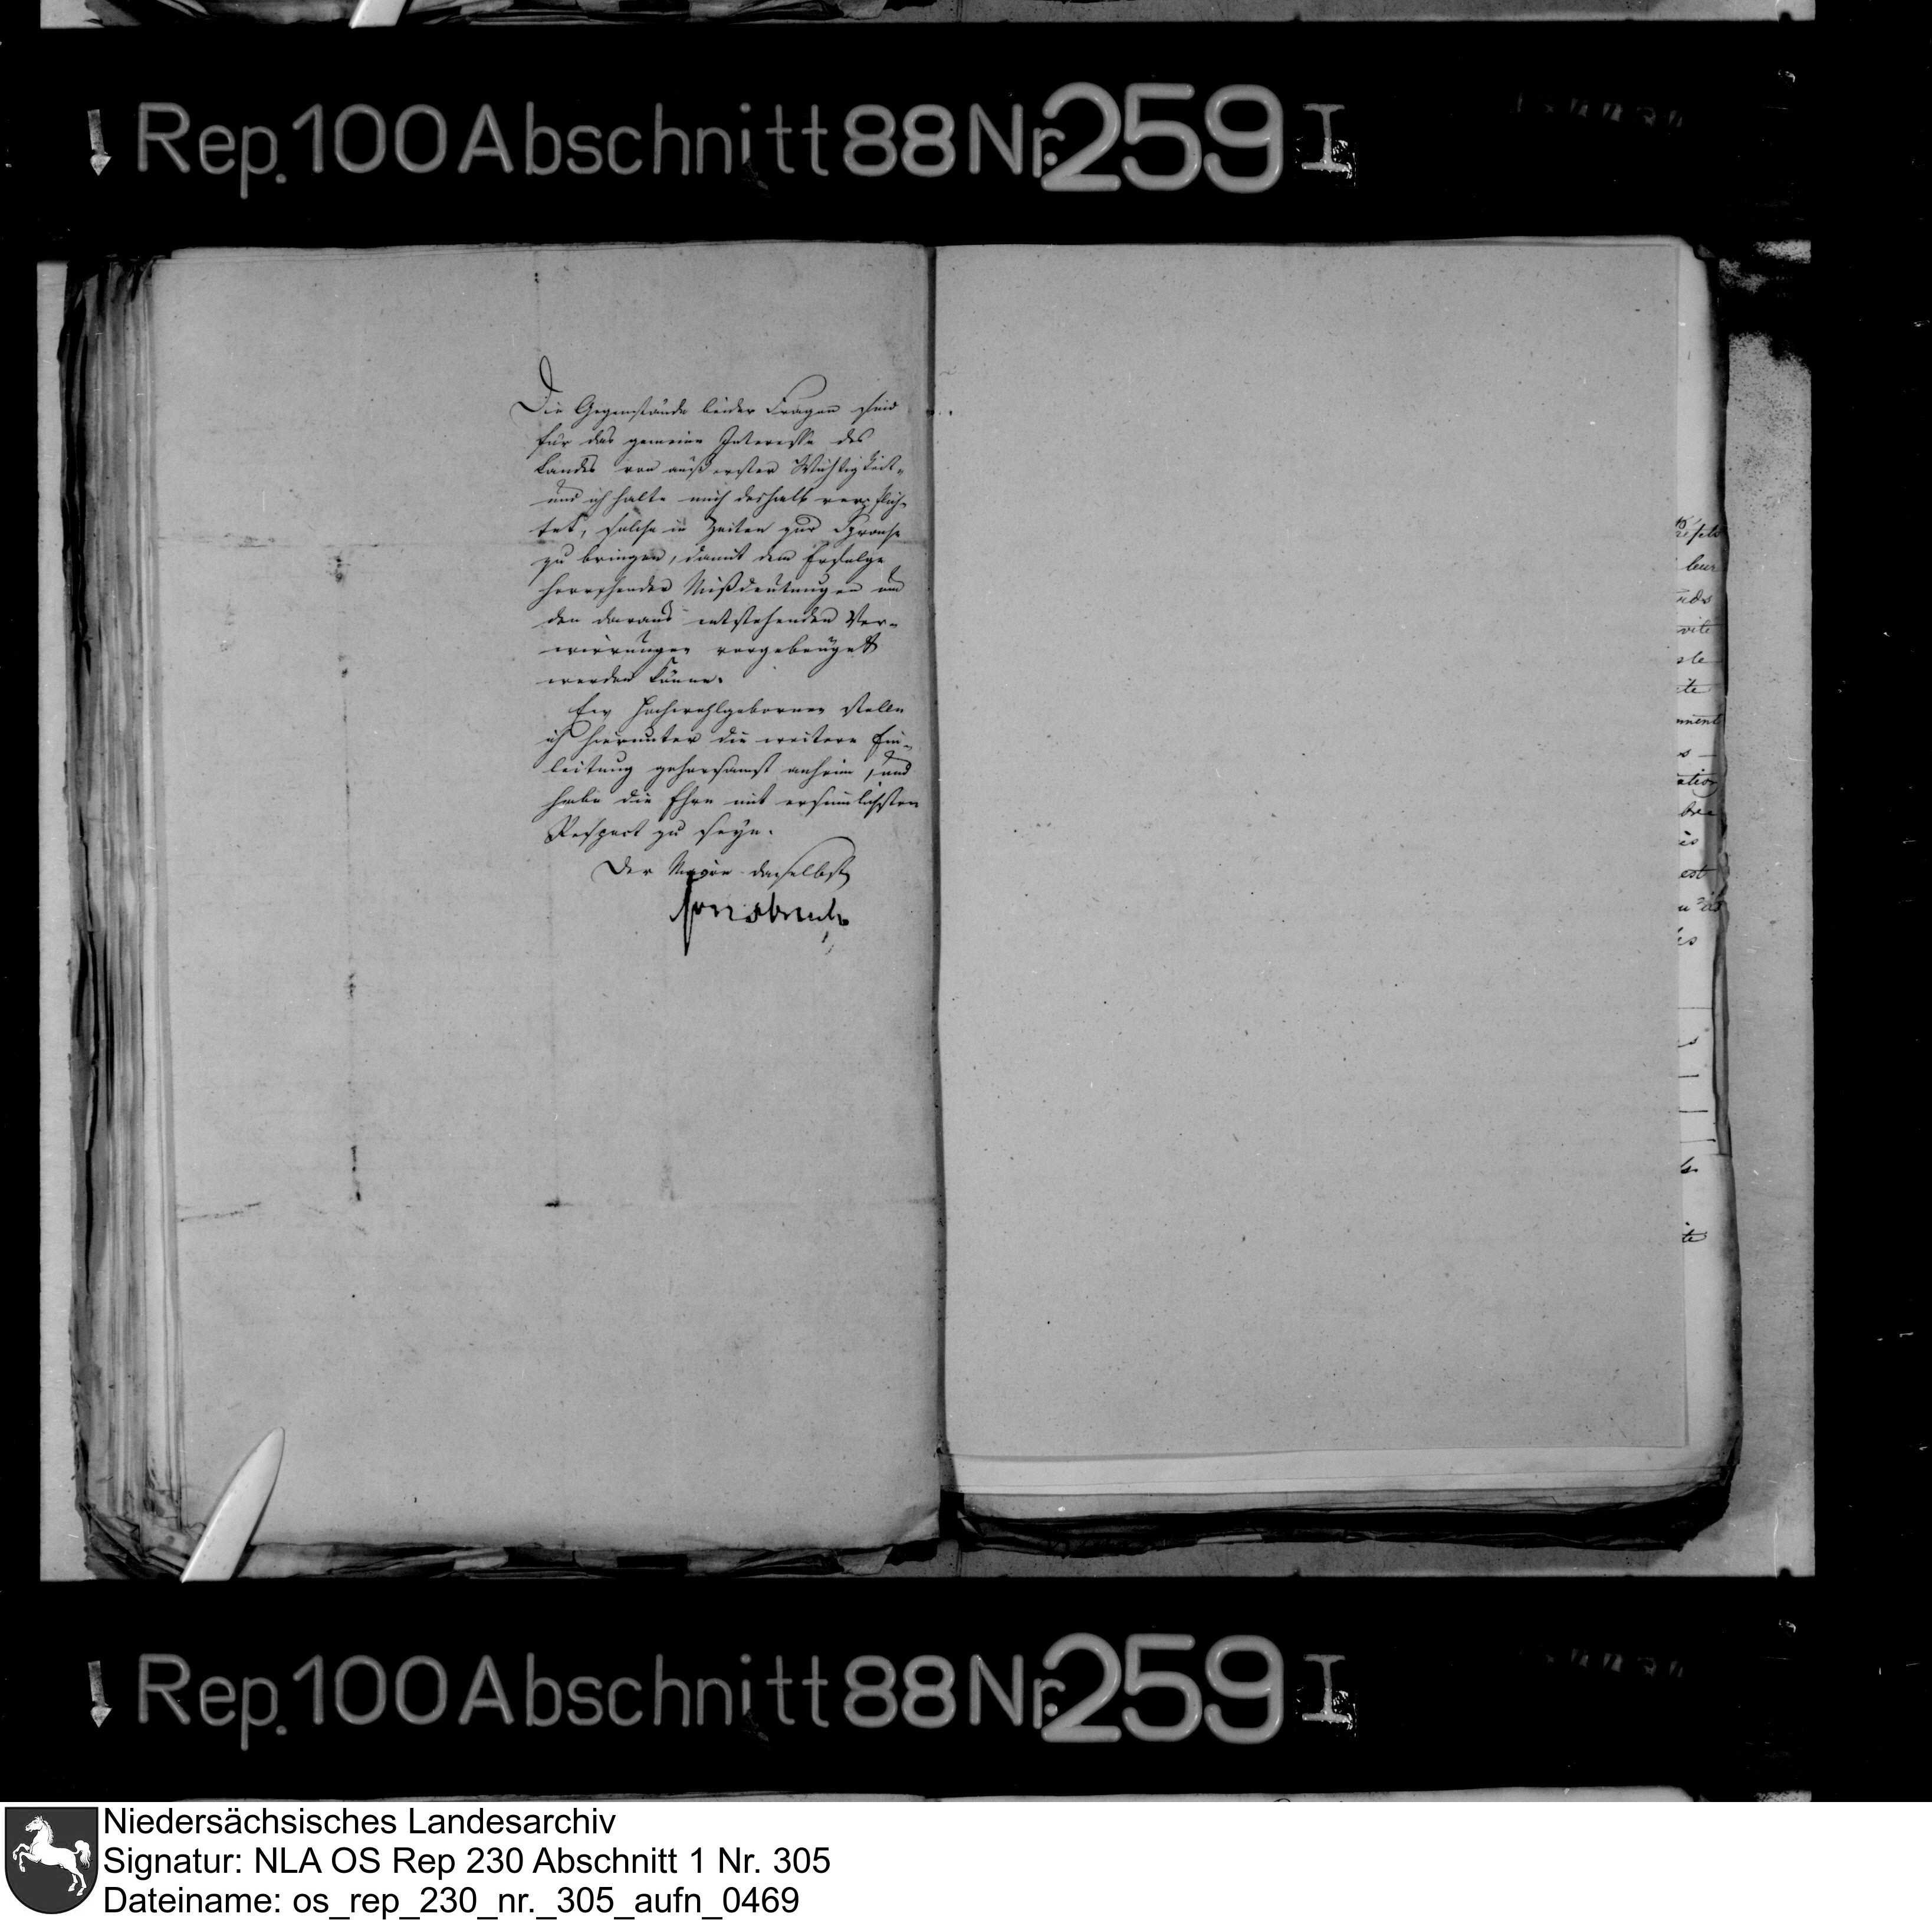 Rep. 100 Abschnitt 88 Nr. 259 I
Die Gegenstände beider Fragen sind
für das gemeine Interesse des
Landes von äußerster Wichtigkeit,
und ich halte mich deshalb verpflich-
tet, solche in Zeiten zur Sprache
zu bringen, damit dem Erfolge
herrschender Mißdeutungen und
den daraus entstehenden Ver-
wirrungen vorgebeuget
werden könne.
Ew Hochwohlgebornen stelle
ich hierunter die weitere Ein-
leitung gehorsamst anheim, und
habe die Ehre mit ersinnlichsten
Respect zu seyn.
Der Maire daselbst
leur
vite
ite
est
Rep. 100 Abschnitt 88 Nr. 259 I
Niedersächsisches Landesarchiv
Signatur: NLA OS Rep 230 Abschnitt 1 Nr. 305
Dateiname: os_rep_230_nr._305_aufn_0469